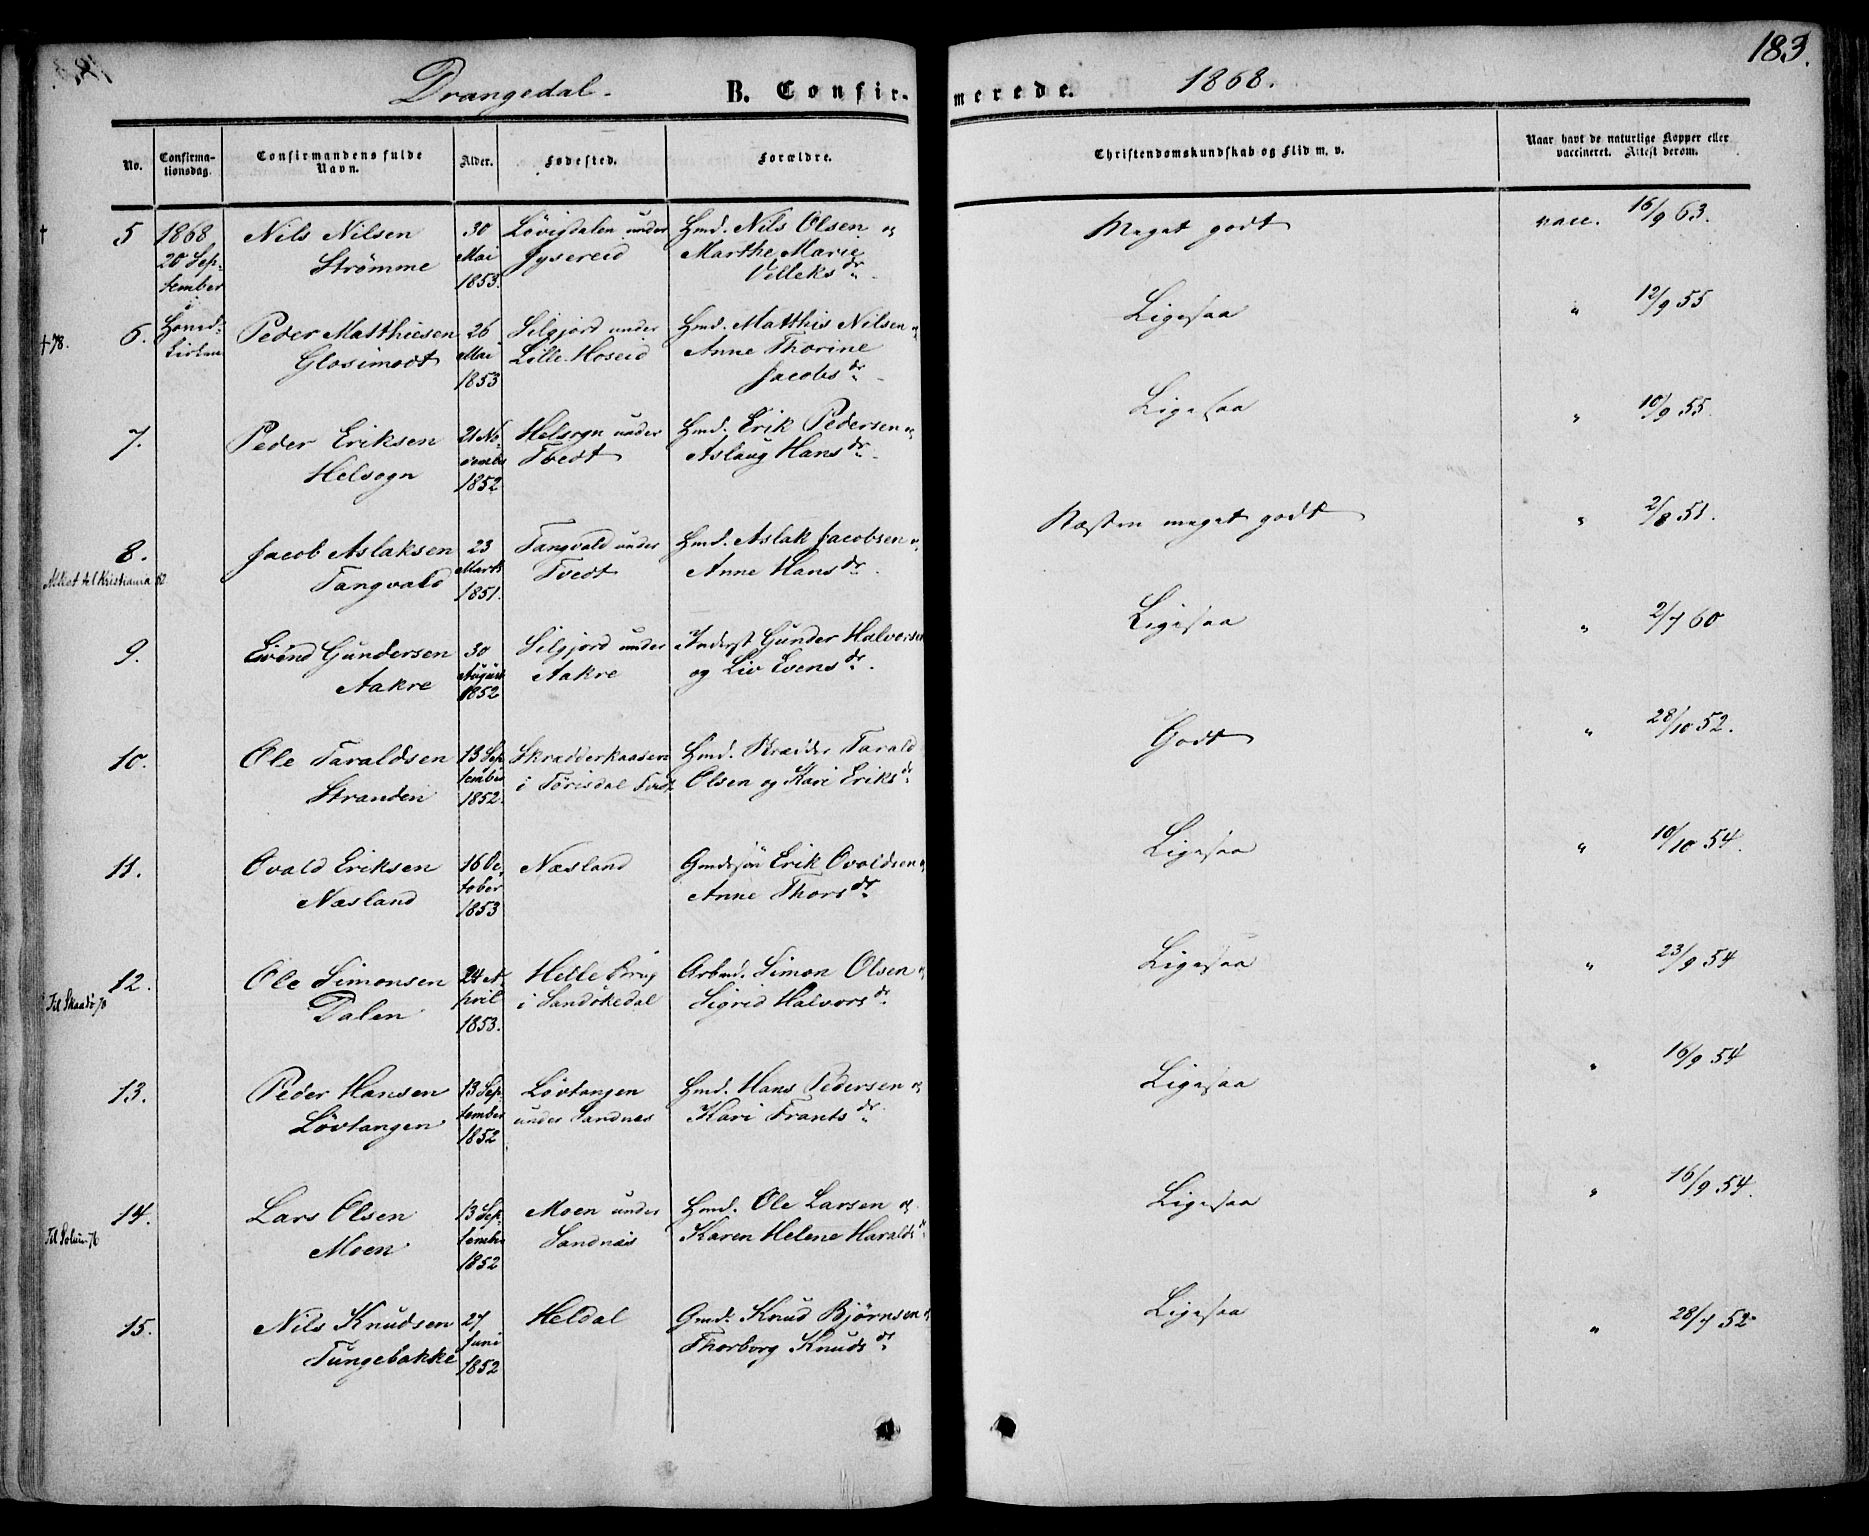 183.
Drangedal.
B. Confirmerede.
1868.
No.
Confirmationsdag.
Confirmandens fulde Navn.
Alder.
Fødested.
Forældre.
Christendomskundskab og Flid m. v.
Naar havt de naturlige Kopper eller vaccineret. Attest derom.
†
5
1868
20 September
i
Hoved-
kirken
Nils Nilsen
Strømme
30
Mai
1853.
Løvigdalen under
Hmd. Nils Olsen og
Marthe Marie
Velleksdr.
Meget godt
vacc. 16/9 63.
† 78.
6.
Peder Matthiesen
Glosimodt
26
Mai
1853
Silgjord under
Lille Hoseid
Hmd. Matthis Nilsen og
Anne Thorine
Jacobsdr.
Ligesaa
" 12/9 55
7.
Peder Eriksen
Helsogn
21 No-
vember
1852
Helsogn under
Tvedt
Hmd. Erik Pedersen og
Aslaug Hansdr.
Ligesaa
" 10/9 55.
8.
Attest til Kristiania 82
Jacob Aslaksen
Tangvald
23
Marts
1851.
Tangvald under
Tvedt
Hmd. Aslak Jacobsen og
Anne Hansdr.
Næsten meget godt
" 2/8 51.
9.
Eivind Gundersen
Aakre
30
August
1852
Silgjord under
Aakre
Inderst Gunder Halvorsen
og Liv Evensdr.
Ligesaa
" 2/7 60
10.
Ole Taraldsen
Stranden
13 Sep-
tember
1852.
Skradderkaasen
i Tørisdal Tvedt
Hmd. Skrædder Tarald
Olsen og Kari Eriksdr.
Godt
" 28/10 52.
11.
Ovald Eriksen
Næsland
16 Oc-
tober
1853
Næsland
Gmdssøn Erik Ovaldsen og
Anne Thorsdr.
Ligesaa
" 10/10 54.
12.
Til Skaadø 70
Ole Simonsen
Dalen
24 A-
pril
1853.
Helle Brug
i Sandøkedal
Arbmd. Simon Olsen og
Sigrid Halvorsdr.
Ligesaa
" 23/9 54
13.
Peder Hansen
Løvtangen
13 Sep-
tember
1852
Løvtangen
under Sandnæs
Hmd. Hans Pedersen og
Kari Frantsdr.
Ligesaa
" 16/9 54
14.
Til Solum 76
Lars Olsen
Moen
13 Sep-
tember
1852
Moen under
Sandnæs
Hmd. Ole Larsen og
Karen Helene Haraldsdr.
Ligesaa
" 16/9 54.
15.
Nils Knudsen
Tungebakke
27
Juni
1852
Heldal
Gmd. Knud Bjørnsen og
Thorborg Knudsdr.
Ligesaa
" 28/7 52